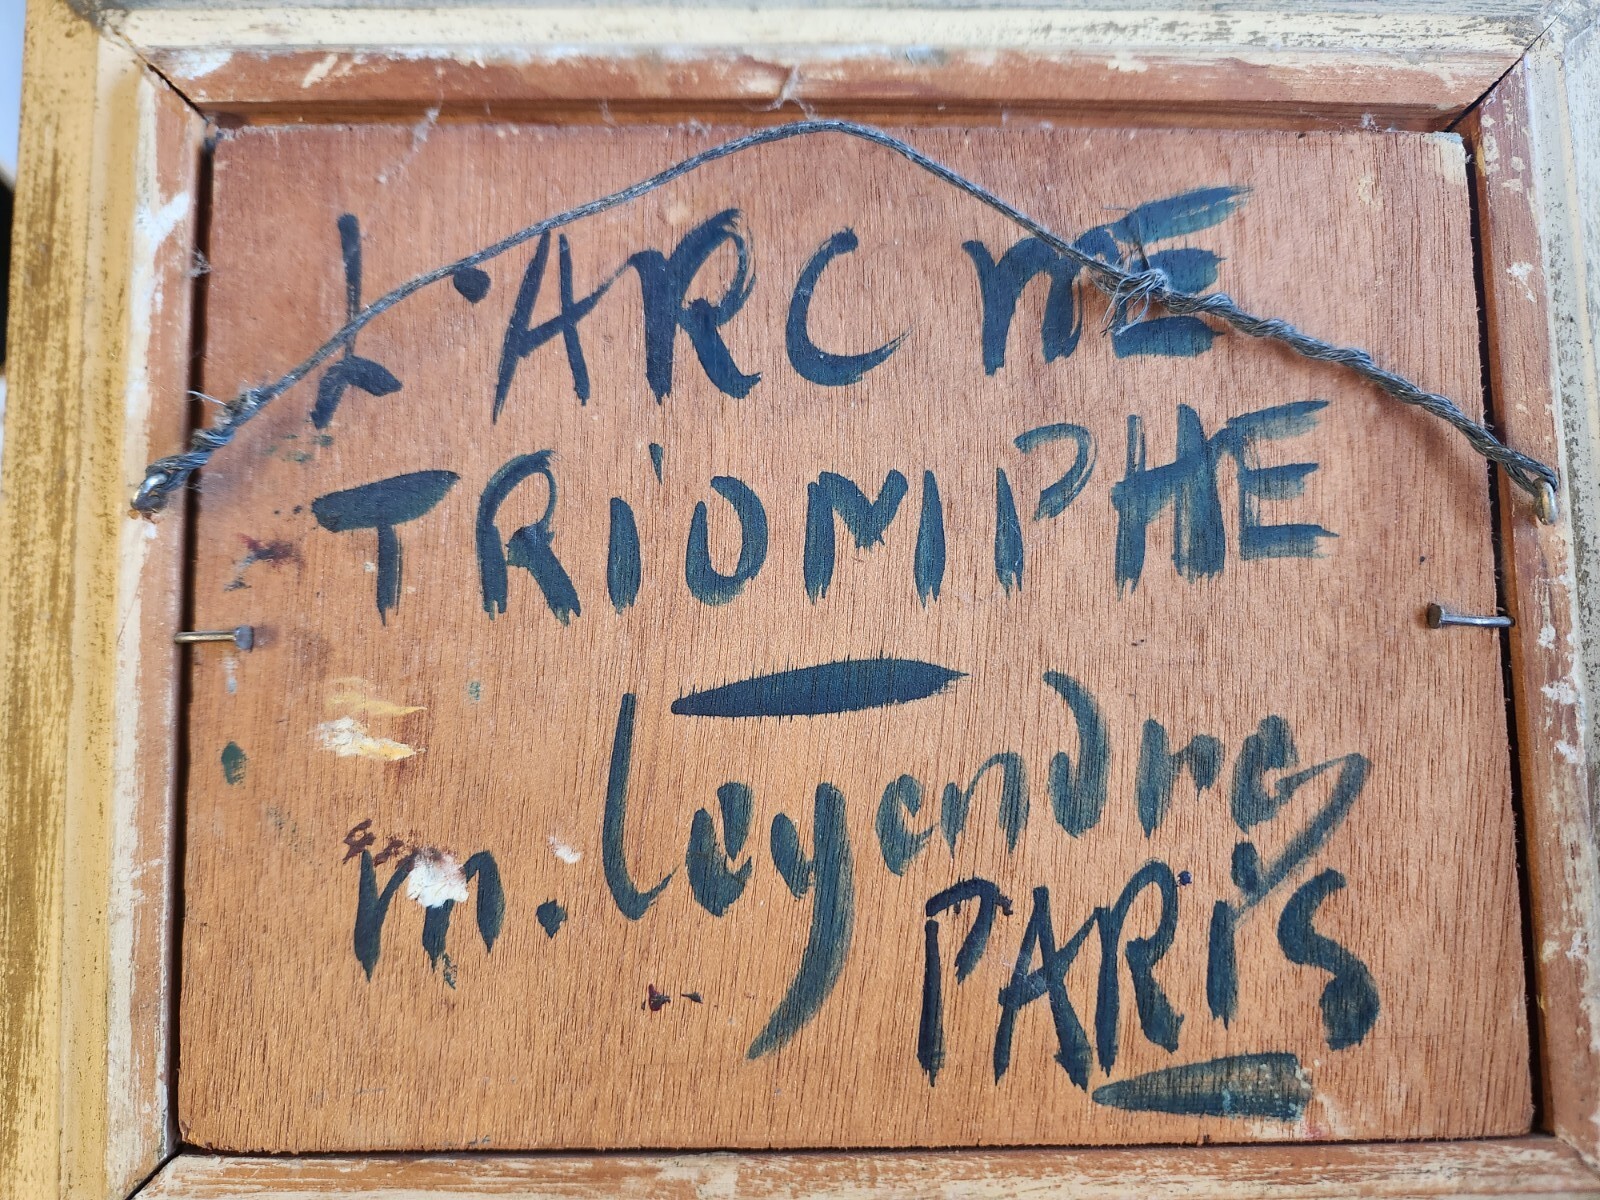 L'ARC DE
TRiOMPHE
m. Legendre
PARiS